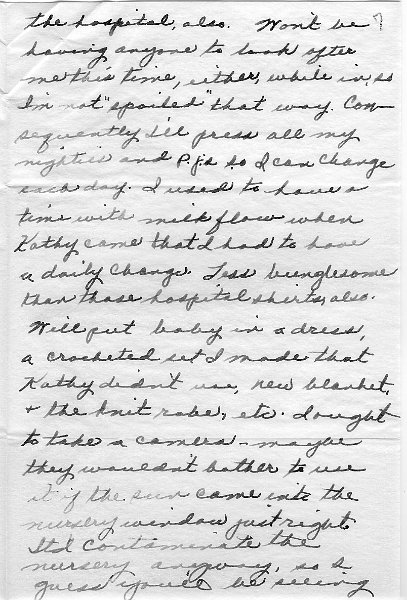 the hospital, also. Won't be 7
having anyone to look after
me this time, either, while in, so
I'm not "spoiled" that way. Con-
sequently I'll press all my
nighties and P.J.s so I can change
each day. I used to have a
time with milk flow when
Kathy came that I had to have
a daily change. Less bunglesome
than those hospital shirts, also.
Will put baby in a dress,
a crocheted set I made that
Kathy didn't use, new blanket,
+ the knit robe, etc. I ought
to take a camera - maybe
they wouldn't bother to use
it if the sun came into the
nursery window just right.
It'd contaminate the
nursery anyway, so I
guess you'll be seeing